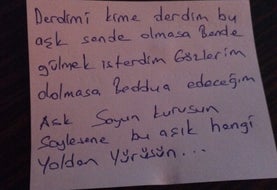 Derdimi kime derdim bu
aşk sende olmasa Bende
gülmek isterdim Gözlerim
dolmasa Beddua edeceğim
Aşk Soyun kurusun
Söylesene bu aşık hangi
Yoldan Yürüsün...